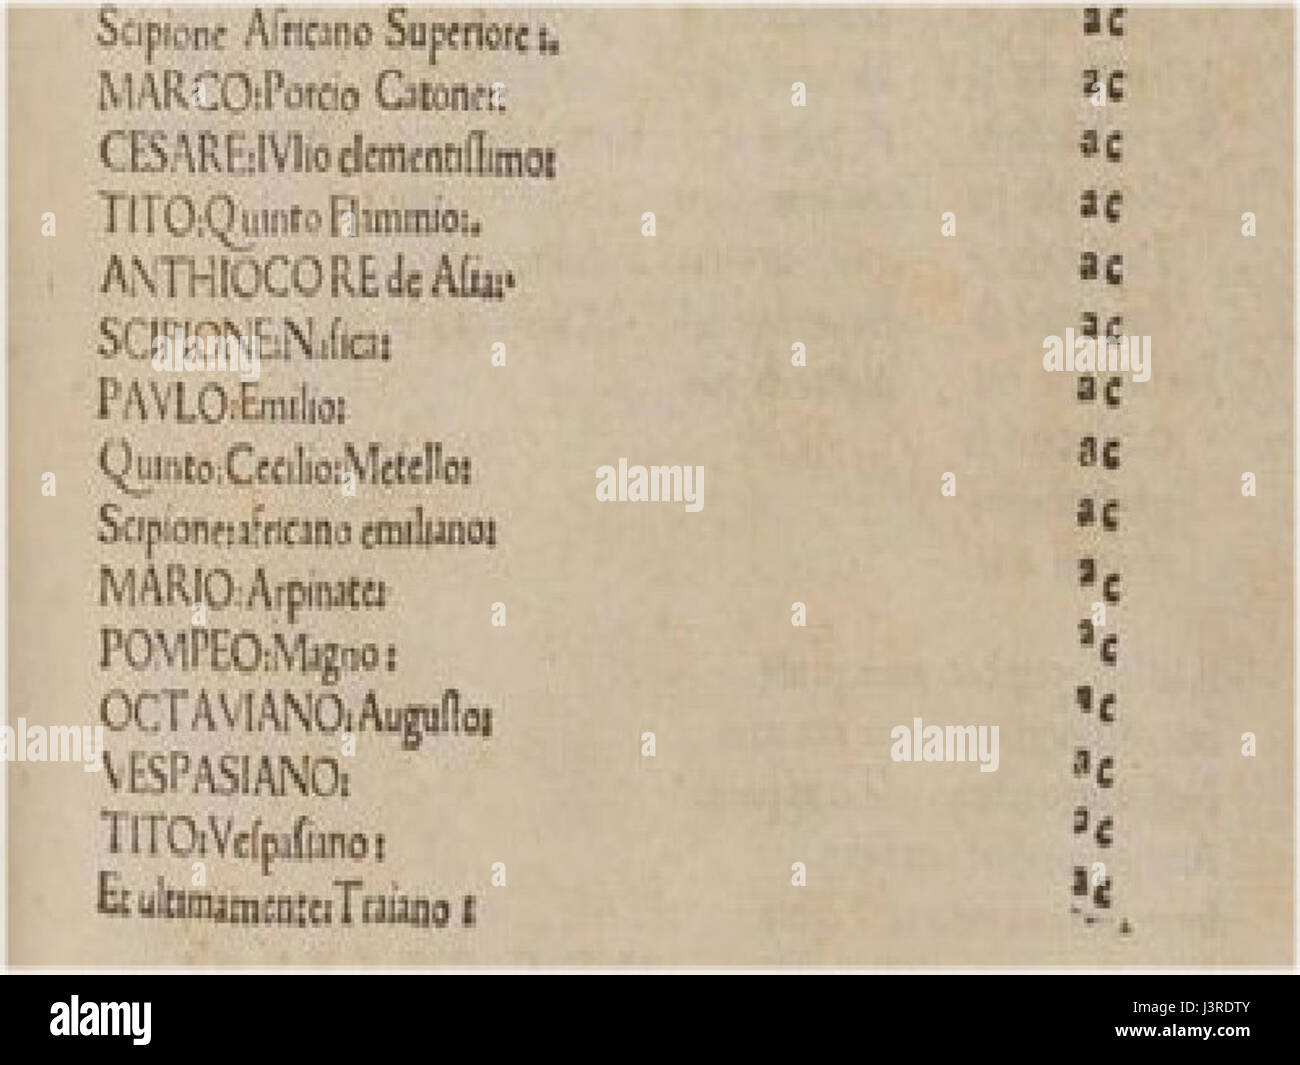 Scipione Africano Superiore :. ac
MARCO:Porcio Catone: ac
CESARE:IVlio clementiſſimo: ac
TITO:Quinto Flaminio:. ac
ANTHIOCO RE de Aſia: ac
SCIPIONE:Naſica: ac
PAVLO:Emilio: ac
Quinto:Cecilio:Metello: ac
Scipione:africano emiliano: ac
MARIO:Arpinate: ac
POMPEO:Magno : ac
OCTAVIANO:Auguſto: ac
VESPASIANO: ac
TITO:Veſpaſiano : ac
Et ultimamente:Traiano : ac
alamy stock photo
a alamy
alamy J3RDTY
www.alamy.com